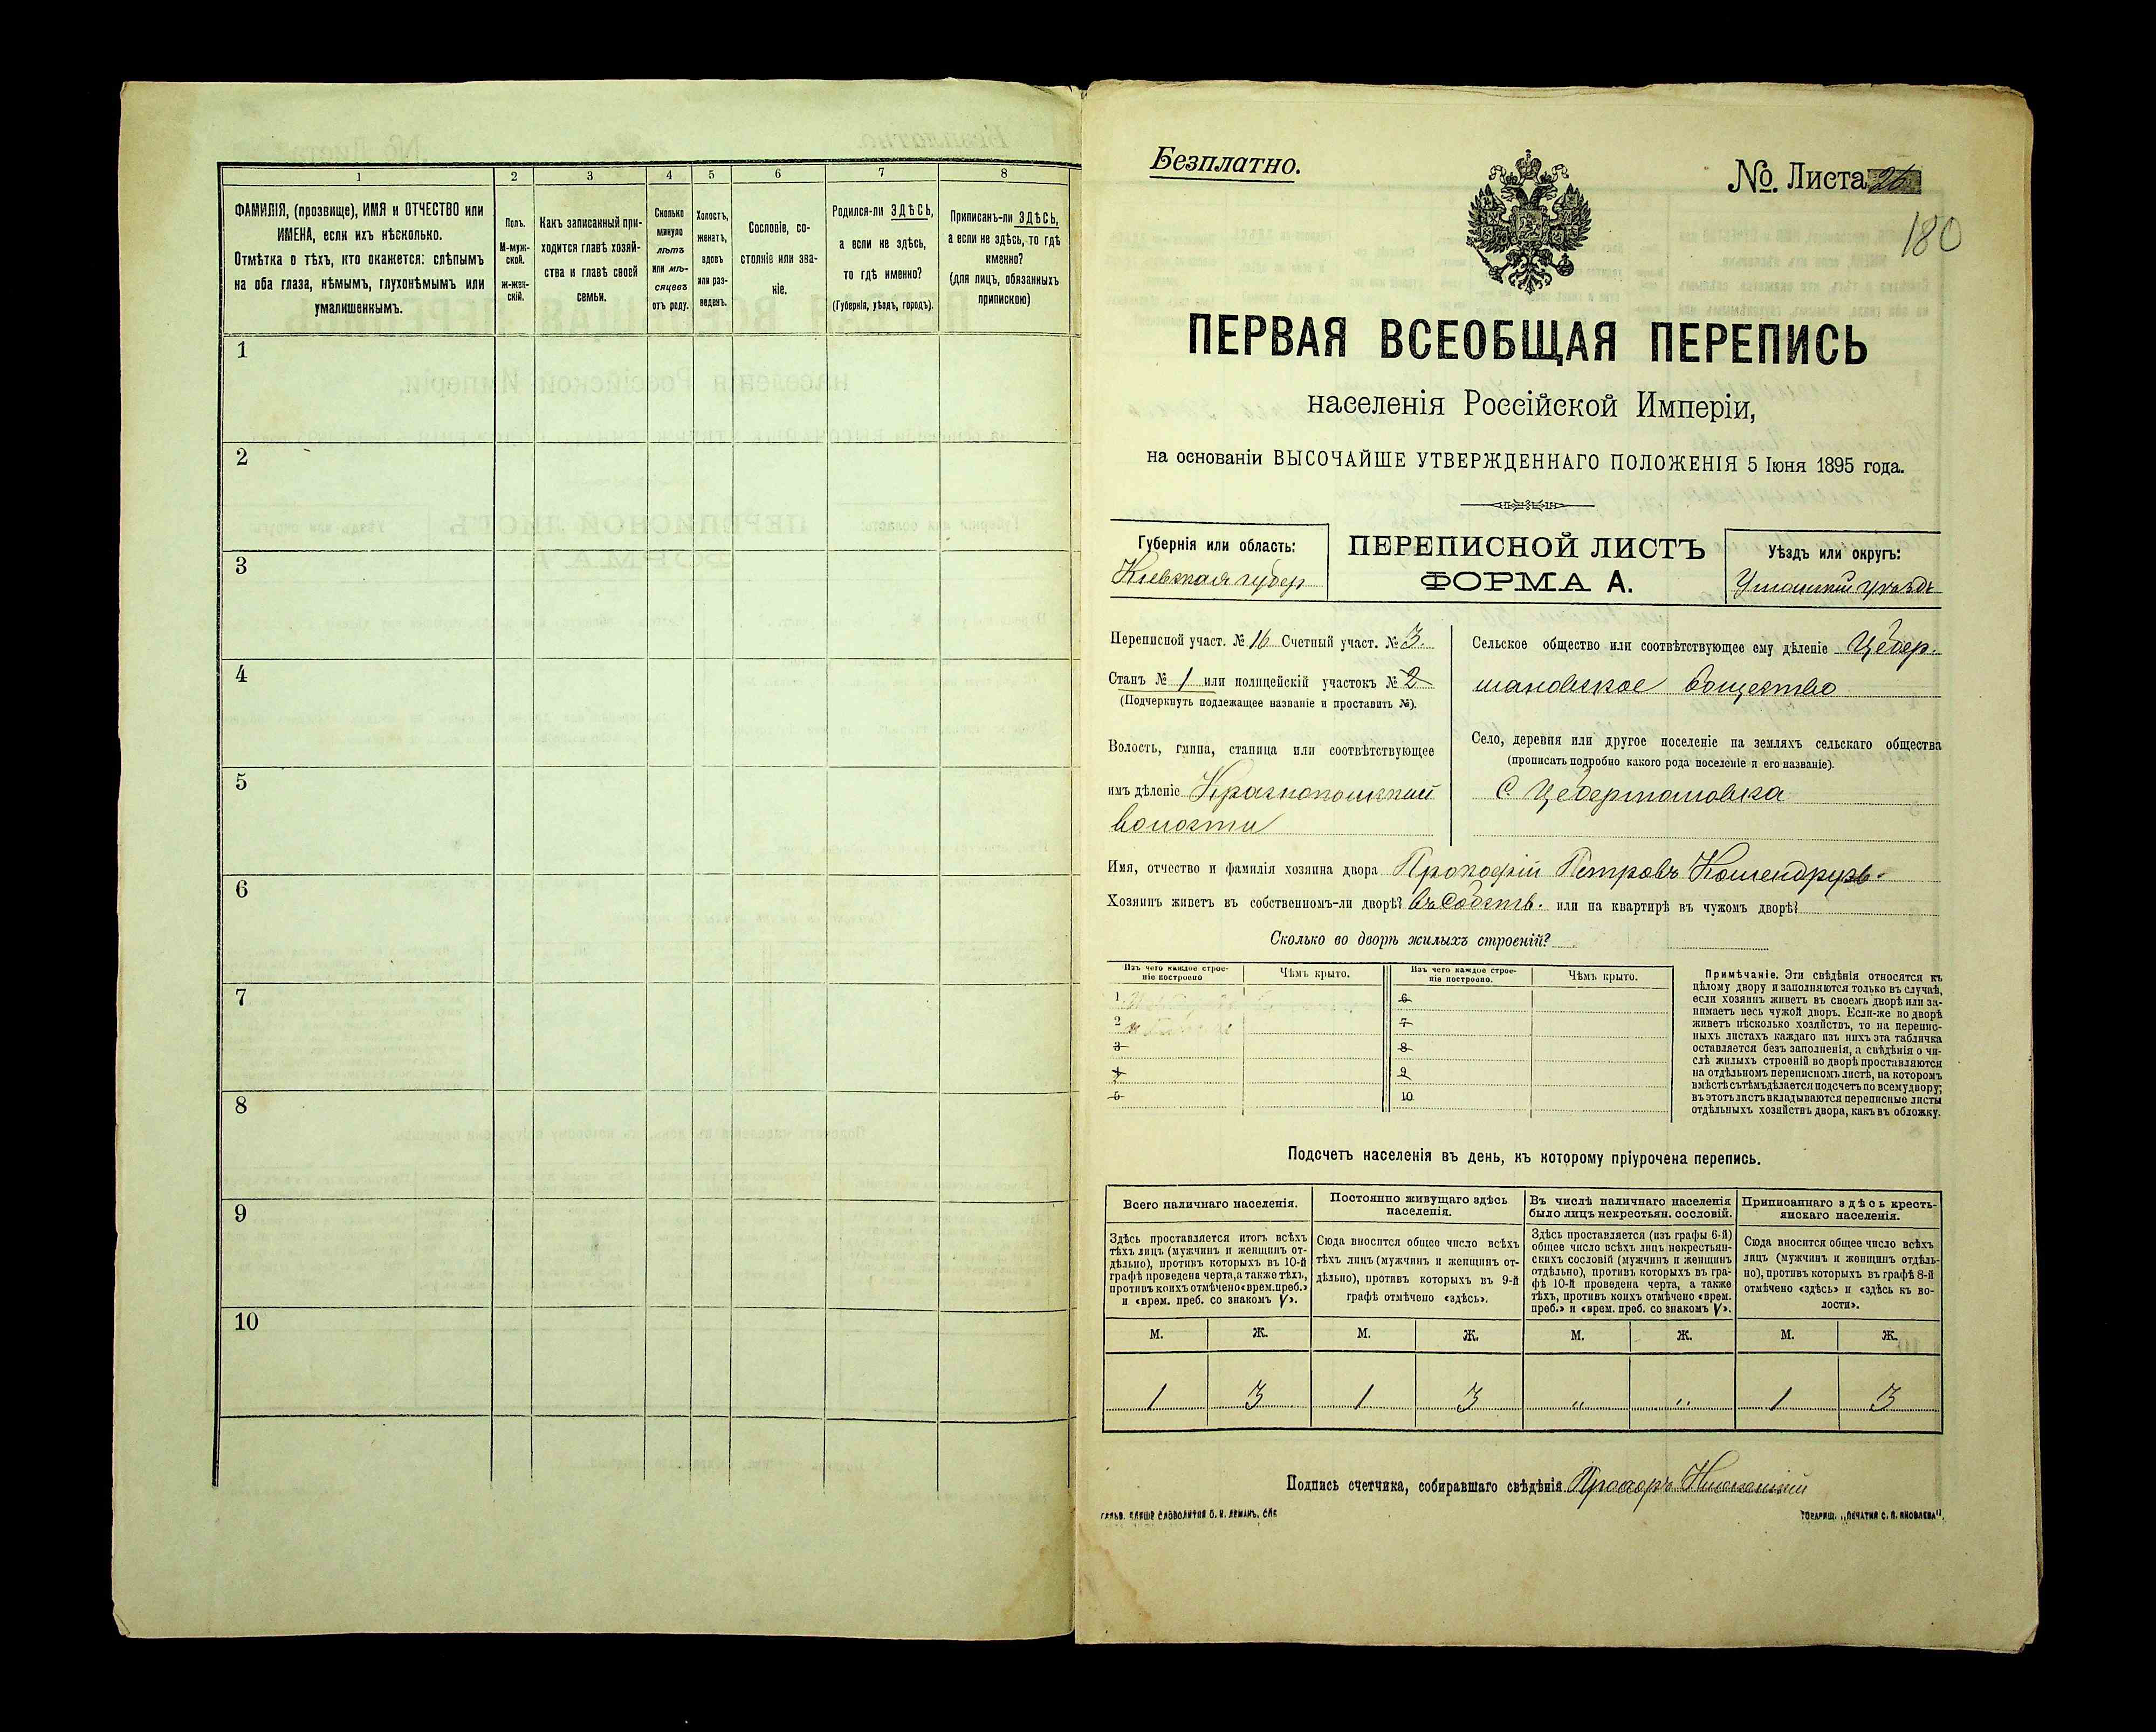 1 2 3 4 5 6 7 8
ФАМИЛІЯ, (прозвище), ИМЯ и ОТЧЕСТВО или
ИМЕНА, если ихъ нѣсколько.
Отмѣтка о тѣхъ, кто окажется: слѣпымъ
на оба глаза, нѣмымъ, глухонѣмымъ или
умалишеннымъ.
Полъ.
М-муж-
ской.
ж-жен-
скій.
Какъ записанный при-
ходится главѣ хозяй-
ства и главѣ своей
семьи.
Сколько
минуло
лѣтъ
или мѣ-
сяцевъ
отъ роду.
Холостъ,
женатъ,
вдовъ
или раз-
веденъ.
Сословіе, со-
стояніе или зва-
ніе.
Родился-ли ЗДѢСЬ,
а если не здѣсь,
то гдѣ именно?
(Губернія, уѣздъ, городъ).
Приписанъ-ли ЗДѢСЬ,
а если не здѣсь, то гдѣ
именно?
(для лицъ, обязанныхъ
припискою)
1
2
3
4
5
6
7
8
9
10
Безплатно.
№. Листа 26
180
ПЕРВАЯ ВСЕОБЩАЯ ПЕРЕПИСЬ
населенія Россійской Имперіи,
на основаніи ВЫСОЧАЙШЕ УТВЕРЖДЕННАГО ПОЛОЖЕНІЯ 5 Іюня 1895 года.
Губернія или область:
Кіевская губер
ПЕРЕПИСНОЙ ЛИСТЪ
ФОРМА А.
Уѣздъ или округъ:
Уманскій уѣздъ
Переписной участ. № 16 Счетный участ. № 3.
Станъ № 1 или полицейскій участокъ № 2
(Подчеркнуть подлежащее названіе и проставить №).
Волость, гмина, станица или соотвѣтствующее
имъ дѣленіе Краснопольской
волости
Сельское общество или соотвѣтствующее ему дѣленіе Цебер.
мановское общество
Село, деревня или другое поселеніе на земляхъ сельскаго общества
(прописать подробно какого рода поселеніе и его названіе).
С. Цебермановка
Имя, отчество и фамилія хозяина двора Прокофій Петровъ
Хозяинъ живетъ въ собственномъ-ли дворѣ? въ Собств. или на квартирѣ въ чужомъ дворѣ?
Сколько во дворѣ жилыхъ строеній?
Изъ чего каждое строе-
ніе построено
Чѣмъ крыто.
Изъ чего каждое строе-
ніе построено.
Чѣмъ крыто.
1
2
3
4
5
6
7
8
9
10
Примѣчаніе. Эти свѣдѣнія относятся къ
цѣлому двору и заполняются только въ случаѣ,
если хозяинъ живетъ въ своемъ дворѣ или за-
нимаетъ весь чужой дворъ. Если-же во дворѣ
живетъ нѣсколько хозяйствъ, то на перепис-
ныхъ листахъ каждаго изъ нихъ эта табличка
оставляется безъ заполненія, а свѣдѣнія о чи-
слѣ жилыхъ строеній во дворѣ проставляются
на отдѣльномъ переписномъ листѣ, на которомъ
вмѣстѣ сътѣмъ дѣлается подсчетъ по всему двору;
въ этотъ листъ вкладываются переписные листы
отдѣльныхъ хозяйствъ двора, какъ въ обложку.
Подсчетъ населенія въ день, къ которому пріурочена перепись.
Всего наличнаго населенія.
Постоянно живущаго здѣсь
населенія.
Въ числѣ наличнаго населенія
было лицъ некрестьян. сословій.
Приписаннаго здѣсь кресть-
янскаго населенія.
Здѣсь проставляется итогъ всѣхъ
тѣхъ лицъ (мужчинъ и женщинъ от-
дѣльно), противъ которыхъ въ 10-й
графѣ проведена черта, а также тѣхъ,
противъ коихъ отмѣчено «врем.преб.»
и «врем. преб. со знакомъ V».
Сюда вносится общее число всѣхъ
тѣхъ лицъ (мужчинъ и женщинъ от-
дѣльно), противъ которыхъ въ 9-й
графѣ отмѣчено «здѣсь».
Здѣсь проставляется (изъ графы 6-й)
общее число всѣхъ лицъ некрестьян-
скихъ сословій (мужчинъ и женщинъ
отдѣльно), противъ которыхъ въ гра-
фѣ 10-й проведена черта, а также
тѣхъ, противъ коихъ отмѣчено «врем.
преб.» и «врем. преб. со знакомъ V».
Сюда вносится общее число всѣхъ
лицъ (мужчинъ и женщинъ отдѣль-
но), противъ которыхъ въ графѣ 8-й
отмѣчено «здѣсь» и «здѣсь къ во-
лости».
М. Ж. М. Ж. М. Ж. М. Ж.
1 3 1 3 " " 1 3
Подпись счетчика, собиравшаго свѣдѣнія Прохоръ
ТОВАРИЩ. „ПЕЧАТНЯ С. П. ЯКОВЛЕВА".